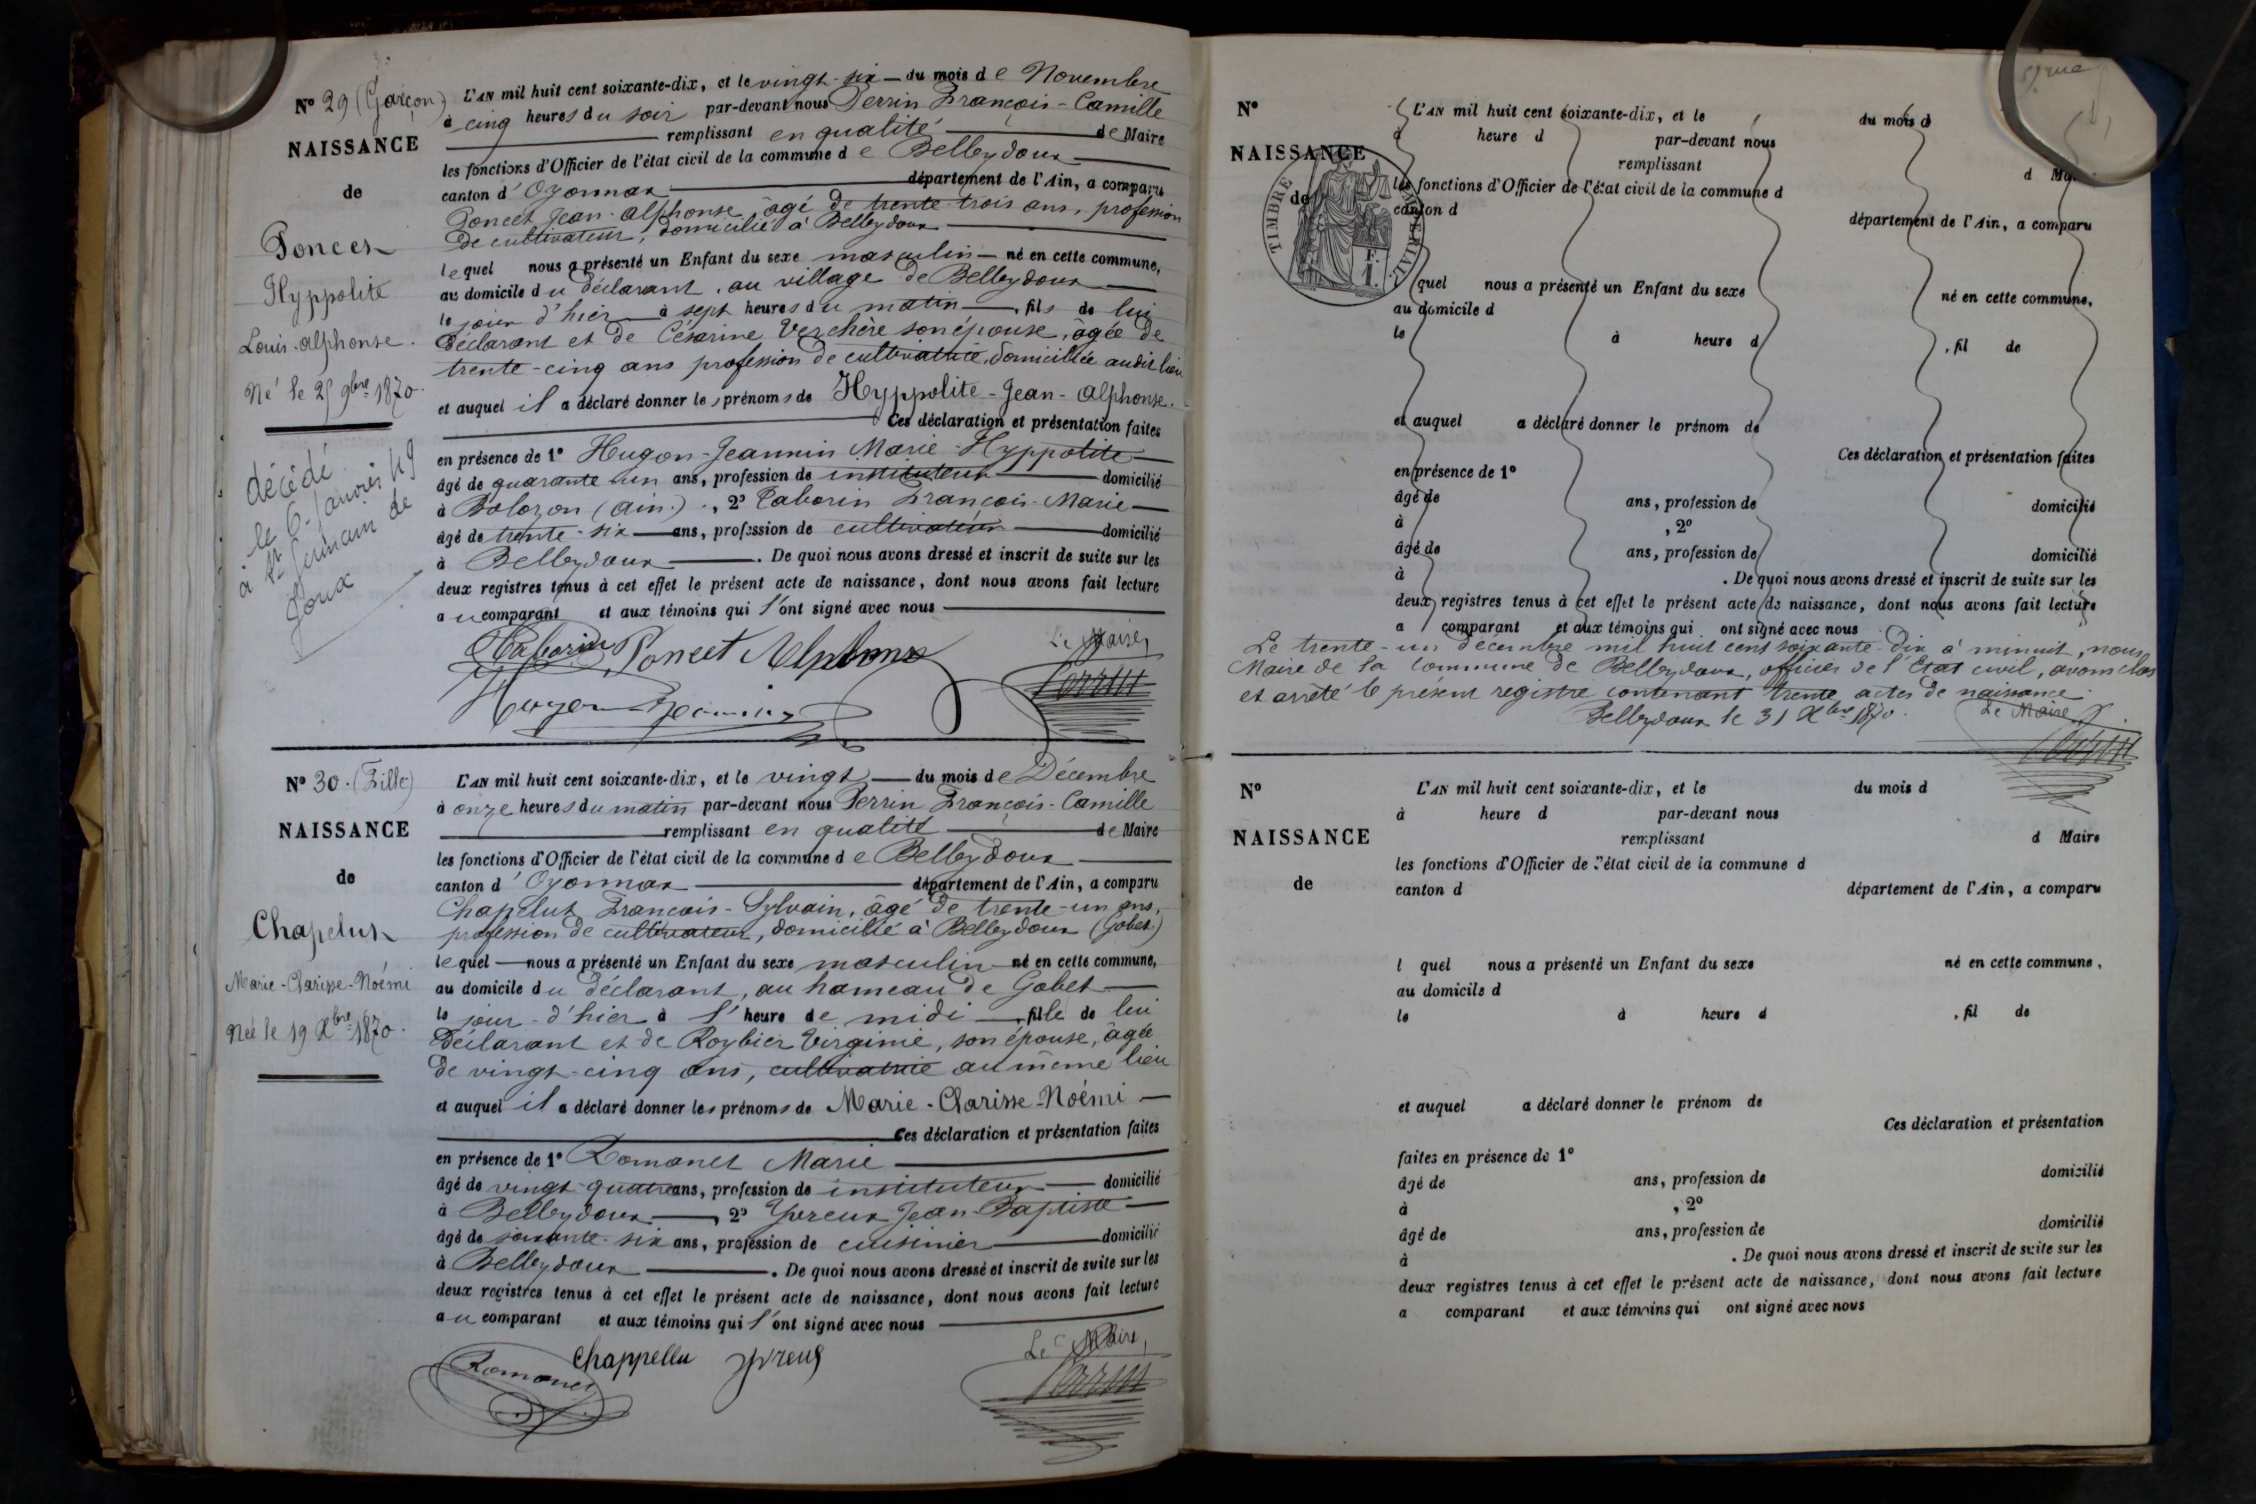 N° 29 (Garçon)
NAISSANCE
de
Poncet
Hyppolite
Louis-Alphonse.
Né le 25 9bre 1870.
décédé
le 6 janvier 49
à St Germain de
Joux
L'AN mil huit cent soixante-dix, et le vingt-six du mois de Novembre
à cinq heures du soir par-devant nous Perrin François-Camille
remplissant en qualité de Maire
les fonctions d'Officier de l'état civil de la commune de Belleydoux
canton d'Oyonnax département de l'Ain, a comparu
Poncet Jean-Alphonse âgé de trente trois ans, profession
de cultivateur, domicilié à Belleydoux
lequel nous a présenté un Enfant du sexe masculin né en cette commune,
au domicile du déclarant, au village de Belleydoux
le jour d'hier à sept heures du matin, fils de lui
déclarant et de Césarine Verchère son épouse, âgée de
trente-cinq ans profession de cultivatrice, domiciliée audit lieu
et auquel il a déclaré donner les prénoms de Hyppolite-Jean-Alphonse.
Ces déclaration et présentation faites
en présence de 1° Hugon-Jeannin Marie Hyppolite
âgé de quarante un ans, profession de instituteur domicilié
à Bolozon (Ain), 2° Taborin François-Marie
âgé de trente-six ans, profession de cultivateur domicilié
à Belleydoux. De quoi nous avons dressé et inscrit de suite sur les
deux registres tenus à cet effet le présent acte de naissance, dont nous avons fait lecture
au comparant et aux témoins qui l'ont signé avec nous
Taborin Poncet Alphonse Le Maire,
Hugon Jeannin Perrin
N° 30. (Fille)
NAISSANCE
de
Chapelux
Marie-Clarisse-Noémi
Née le 19 Xbre 1870.
L'AN mil huit cent soixante-dix, et le vingt du mois de Décembre
à onze heures du matin par-devant nous Perrin François-Camille
remplissant en qualité de Maire
les fonctions d'Officier de l'état civil de la commune de Belleydoux
canton d'Oyonnax département de l'Ain, a comparu
Chapelux François-Sylvain, âgé de trente-un ans,
profession de cultivateur, domicilié à Belleydoux (Gobet)
lequel nous a présenté un Enfant du sexe masculin né en cette commune,
au domicile du déclarant, au hameau de Gobet
le jour d'hier à l'heure de midi, fille de lui
déclarant et de Roybier Virginie, son épouse, âgée
de vingt-cinq ans, cultivatrice au même lieu
et auquel il a déclaré donner les prénoms de Marie-Clarisse-Noémi
Ces déclaration et présentation faites
en présence de 1° Romanet Marie
âgé de vingt-quatre ans, profession de instituteur domicilié
à Belleydoux, 2° Yvreux Jean-Baptiste
âgé de soixante-six ans, profession de cuisinier domicilié
à Belleydoux. De quoi nous avons dressé et inscrit de suite sur les
deux registres tenus à cet effet le présent acte de naissance, dont nous avons fait lecture
au comparant et aux témoins qui l'ont signé avec nous
Romanet Chappellu Yvreux Le Maire,
Perrin
N°
NAISSANCE
de
TIMBRE IMPERIAL
L'AN mil huit cent soixante-dix, et le du mois d
à heure d par-devant nous
remplissant d Maire
les fonctions d'Officier de l'état civil de la commune d
canton d département de l'Ain, a comparu
l quel nous a présenté un Enfant du sexe né en cette commune,
au domicile d
le à heure d , fil de
et auquel a déclaré donner le prénom de
Ces déclaration et présentation faites
en présence de 1°
âgé de ans, profession de domicilié
à , 2°
âgé de ans, profession de domicilié
à . De quoi nous avons dressé et inscrit de suite sur les
deux registres tenus à cet effet le présent acte de naissance, dont nous avons fait lecture
a comparant et aux témoins qui ont signé avec nous
Le trente-un décembre mil huit cent soixante-dix à minuit, nous
Maire de la Commune de Belleydoux, officier de l'Etat civil, avons clos
et arrêté le présent registre contenant trente actes de naissance.
Belleydoux le 31 Xbre 1870. Le Maire
Perrin
N°
NAISSANCE
de
L'AN mil huit cent soixante-dix, et le du mois d
à heure d par-devant nous
remplissant d Maire
les fonctions d'Officier de l'état civil de la commune d
canton d département de l'Ain, a comparu
l quel nous a présenté un Enfant du sexe né en cette commune,
au domicile d
le à heure d , fil de
et auquel a déclaré donner le prénom de
Ces déclaration et présentation
faites en présence de 1°
âgé de ans, profession de domicilié
à , 2°
âgé de ans, profession de domicilié
à . De quoi nous avons dressé et inscrit de suite sur les
deux registres tenus à cet effet le présent acte de naissance, dont nous avons fait lecture
a comparant et aux témoins qui ont signé avec nous